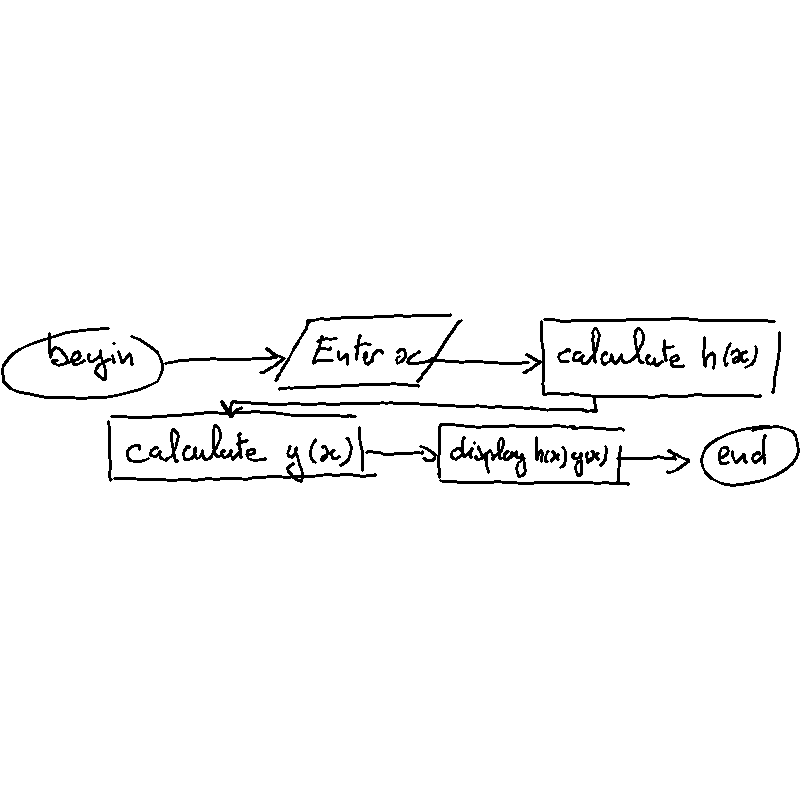 begin Enter x calculate h(x)
calculate y(x) display h(x) y(x) end